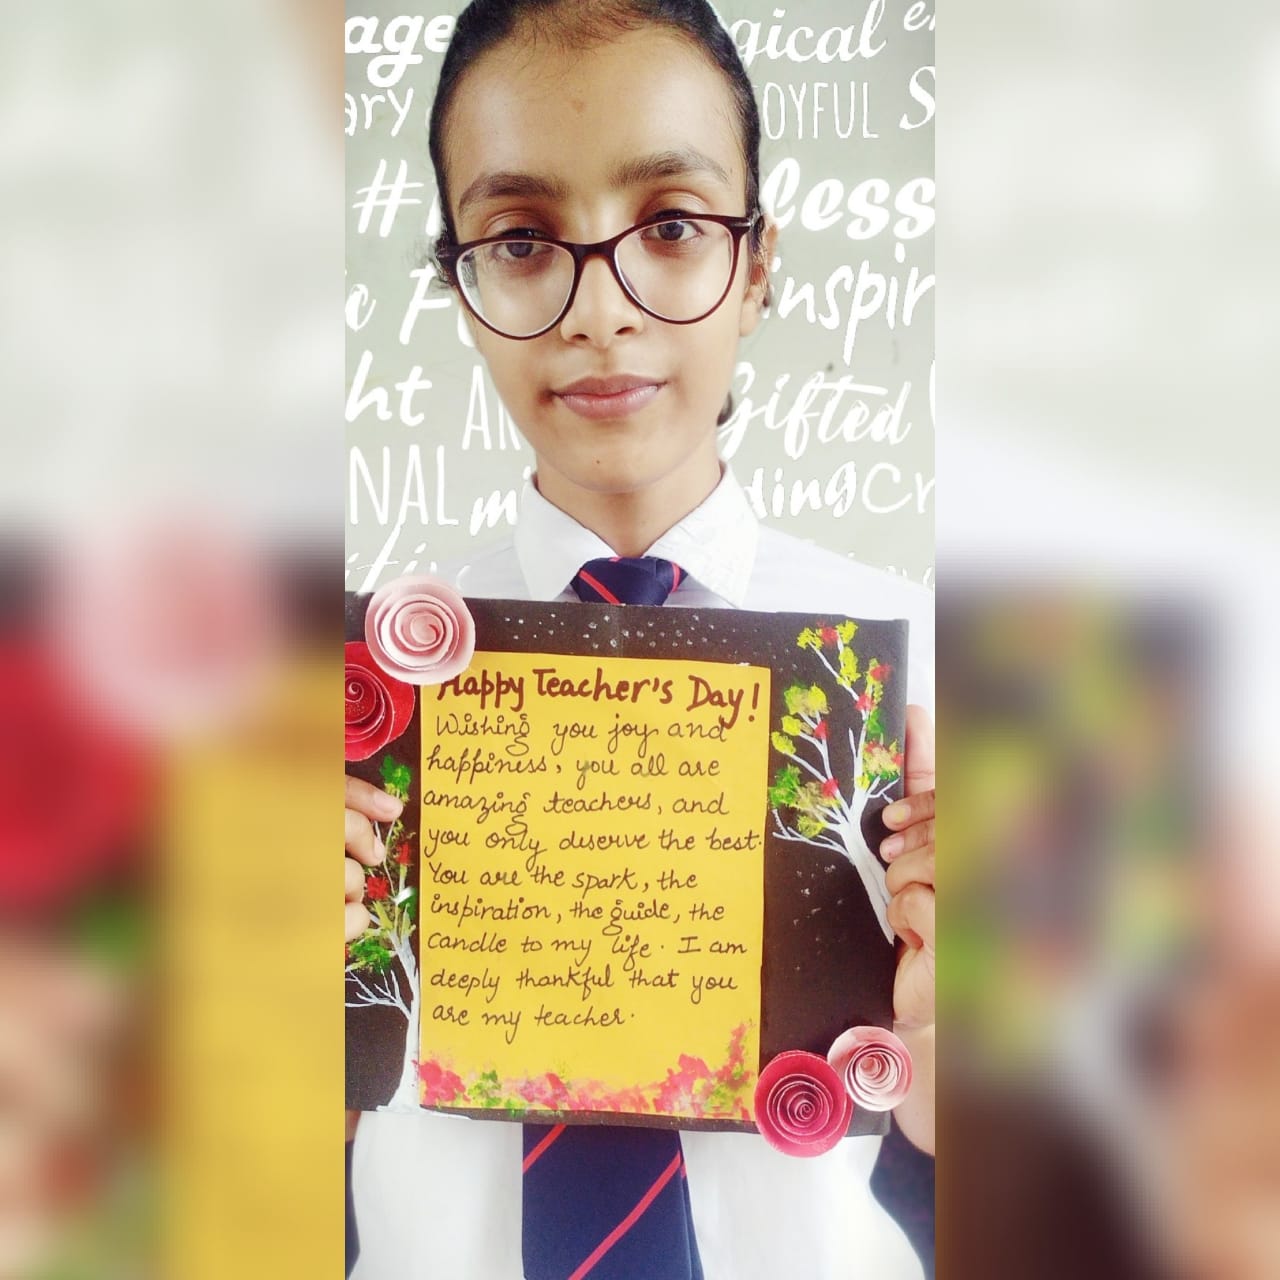 gical
JOYFUL
less
inspir
Gifted
Happy Teacher's Day!
Wishing you joy and
happiness, you all are
amazing teachers, and
you only deserve the best.
You are the spark, the
inspiration, the guide, the
candle to my life. I am
deeply thankful that you
are my teacher.